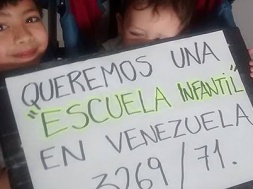 QUEREMOS UNA
"ESCUELA INFANTIL"
EN VENEZUELA
3269/71.